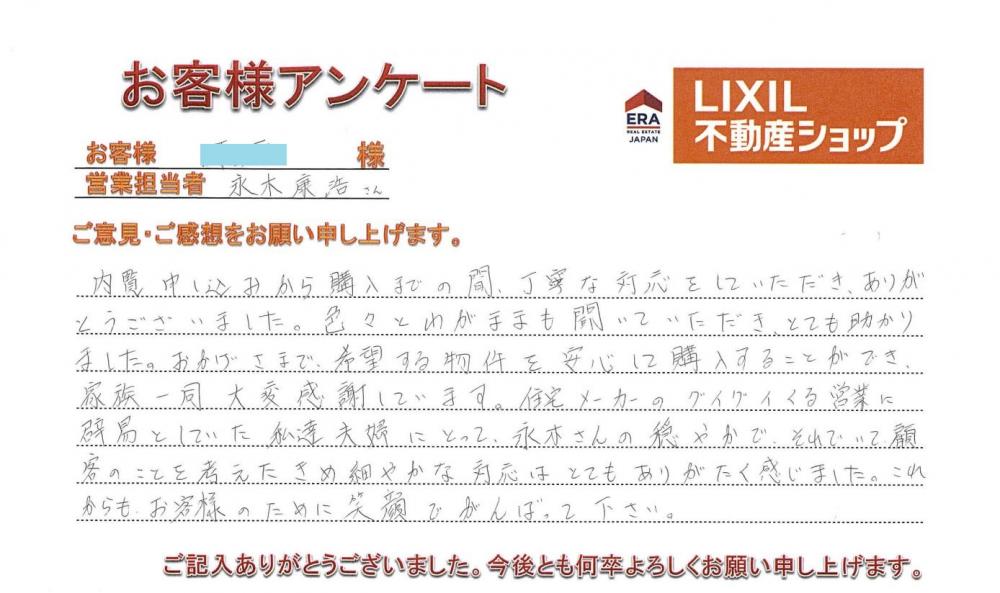 お客様アンケート
ERA
REAL ESTATE
JAPAN
LIXIL
不動産ショップ
お客様 様
営業担当者 永木康浩さん
ご意見・ご感想をお願い申し上げます。
内覧申し込みから購入までの間、丁寧な対応をしていただき、ありが
とうございました。色々とわがままも聞いていただき、とても助かり
ました。おかげさまで、希望する物件を安心して購入することができ、
家族一同大変感謝しています。住宅メーカーのグイグイくる営業に
辟易としていた私達夫婦にとって、永木さんの穏やかで、それでいて顧
客のことを考えたきめ細やかな対応はとてもありがたく感じました。これ
からも、お客様のために笑顔でがんばって下さい。
ご記入ありがとうございました。今後とも何卒よろしくお願い申し上げます。